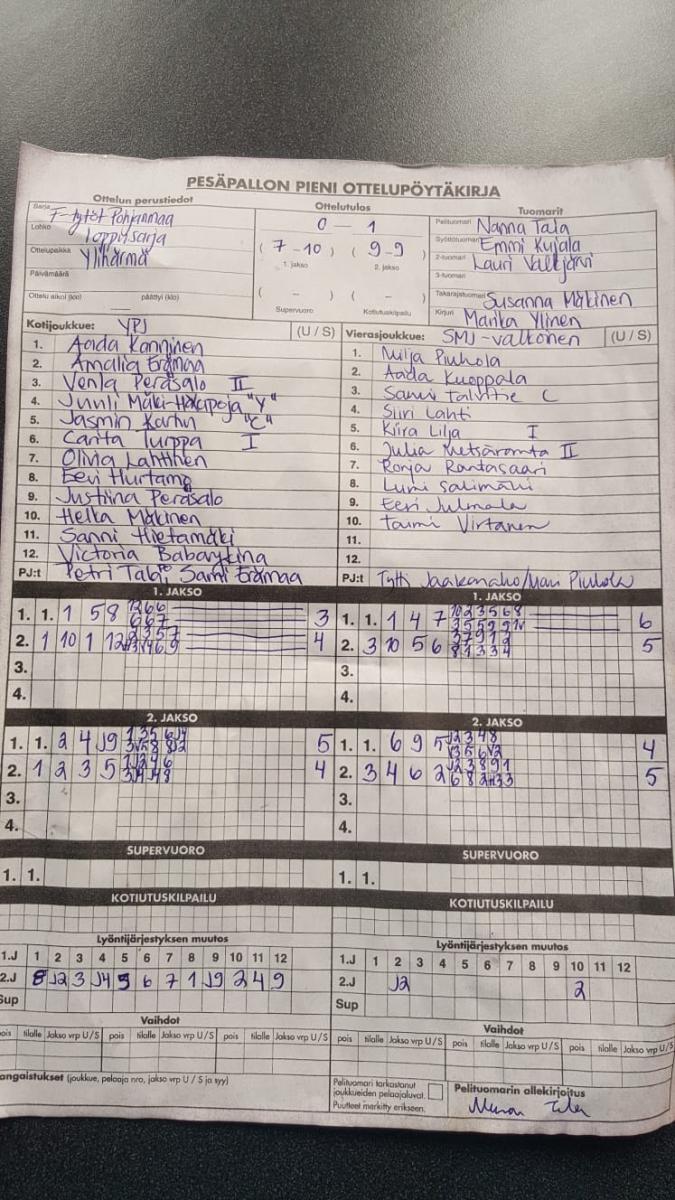 PESÄPALLON PIENI OTTELUPÖYTÄKIRJA
Ottelun perustiedot
Sarja F-tytöt Pohjanmaa
Lohko Loppusarja
Ottelupaikka Ylihärmä
Päivämäärä
Ottelu alkoi (klo) päättyi (klo)
Ottelutulos
0 - 1
(7-10) (9-9)
1. jakso 2. jakso
( - ) ( - )
Supervuoro Kotiutuskilpailu
Tuomarit
Pelituomari Nanna Tala
Syöttötuomari Emmi Kujala
2-tuomari Lauri Valkjärvi
3-tuomari
Takarajatuomari Susanna Mäkinen
Kirjuri Marika Ylinen
Kotijoukkue: YPJ (U / S)
1. Aada Kanninen
2. Amalia Erämaa
3. Venla Peräsalo II
4. Junli Mäki-Hakapoja "Y"
5. Jasmin "C"
6. Carita Turppa I
7. Olivia Lahtinen
8. Eevi Hurtamo
9. Justiina Peräsalo
10. Helka Mäkinen
11. Sanni Hietamäki
12. Victoria Babarykina
PJ:t Petri Sami Erämaa
Vierasjoukkue: SMJ-valkonen (U / S)
1. Milja Piuhola
2. Aada Kuoppala
3. Sanni Talvitie C
4. Siiri Lahti
5. Kiira Lilja I
6. Julia Metsäranta II
7. Ronja Rantasaari
8. Lumi Salimäki
9. Eevi Julmala
10. Taimi Virtanen
11.
12.
PJ:t Tytti Jaakonaho/Mari Piuhola
1. JAKSO
1. 1. 1 5 8 3
2. 1 10 1 12 4
3.
4.
1. JAKSO
1. 1. 1 4 7 6
2. 3 10 5 6 5
3.
4.
2. JAKSO
1. 1. 2 4 J9 5
2. 1 2 3 5 4
3.
4.
2. JAKSO
1. 1. 6 9 5 4
2. 3 4 6 2 5
3.
4.
SUPERVUORO
1. 1.
SUPERVUORO
1. 1.
KOTIUTUSKILPAILU
KOTIUTUSKILPAILU
Lyöntijärjestyksen muutos
1.J 1 2 3 4 5 6 7 8 9 10 11 12
2.J 8 J2 3 J4 5 6 7 1 J9 2 4 9
Sup
Lyöntijärjestyksen muutos
1.J 1 2 3 4 5 6 7 8 9 10 11 12
2.J J2 2
Sup
Vaihdot
pois tilalle Jakso vrp U/S pois tilalle Jakso vrp U/S pois tilalle Jakso vrp U/S
Vaihdot
pois tilalle Jakso vrp U/S pois tilalle Jakso vrp U/S pois tilalle Jakso vrp U/S
angaistukset (joukkue, pelaaja nro, jakso vrp U / S ja syy)
Pelituomari tarkastanut
joukkueiden pelaajaluvat.
Puutteet merkitty erikseen.
Pelituomarin allekirjoitus